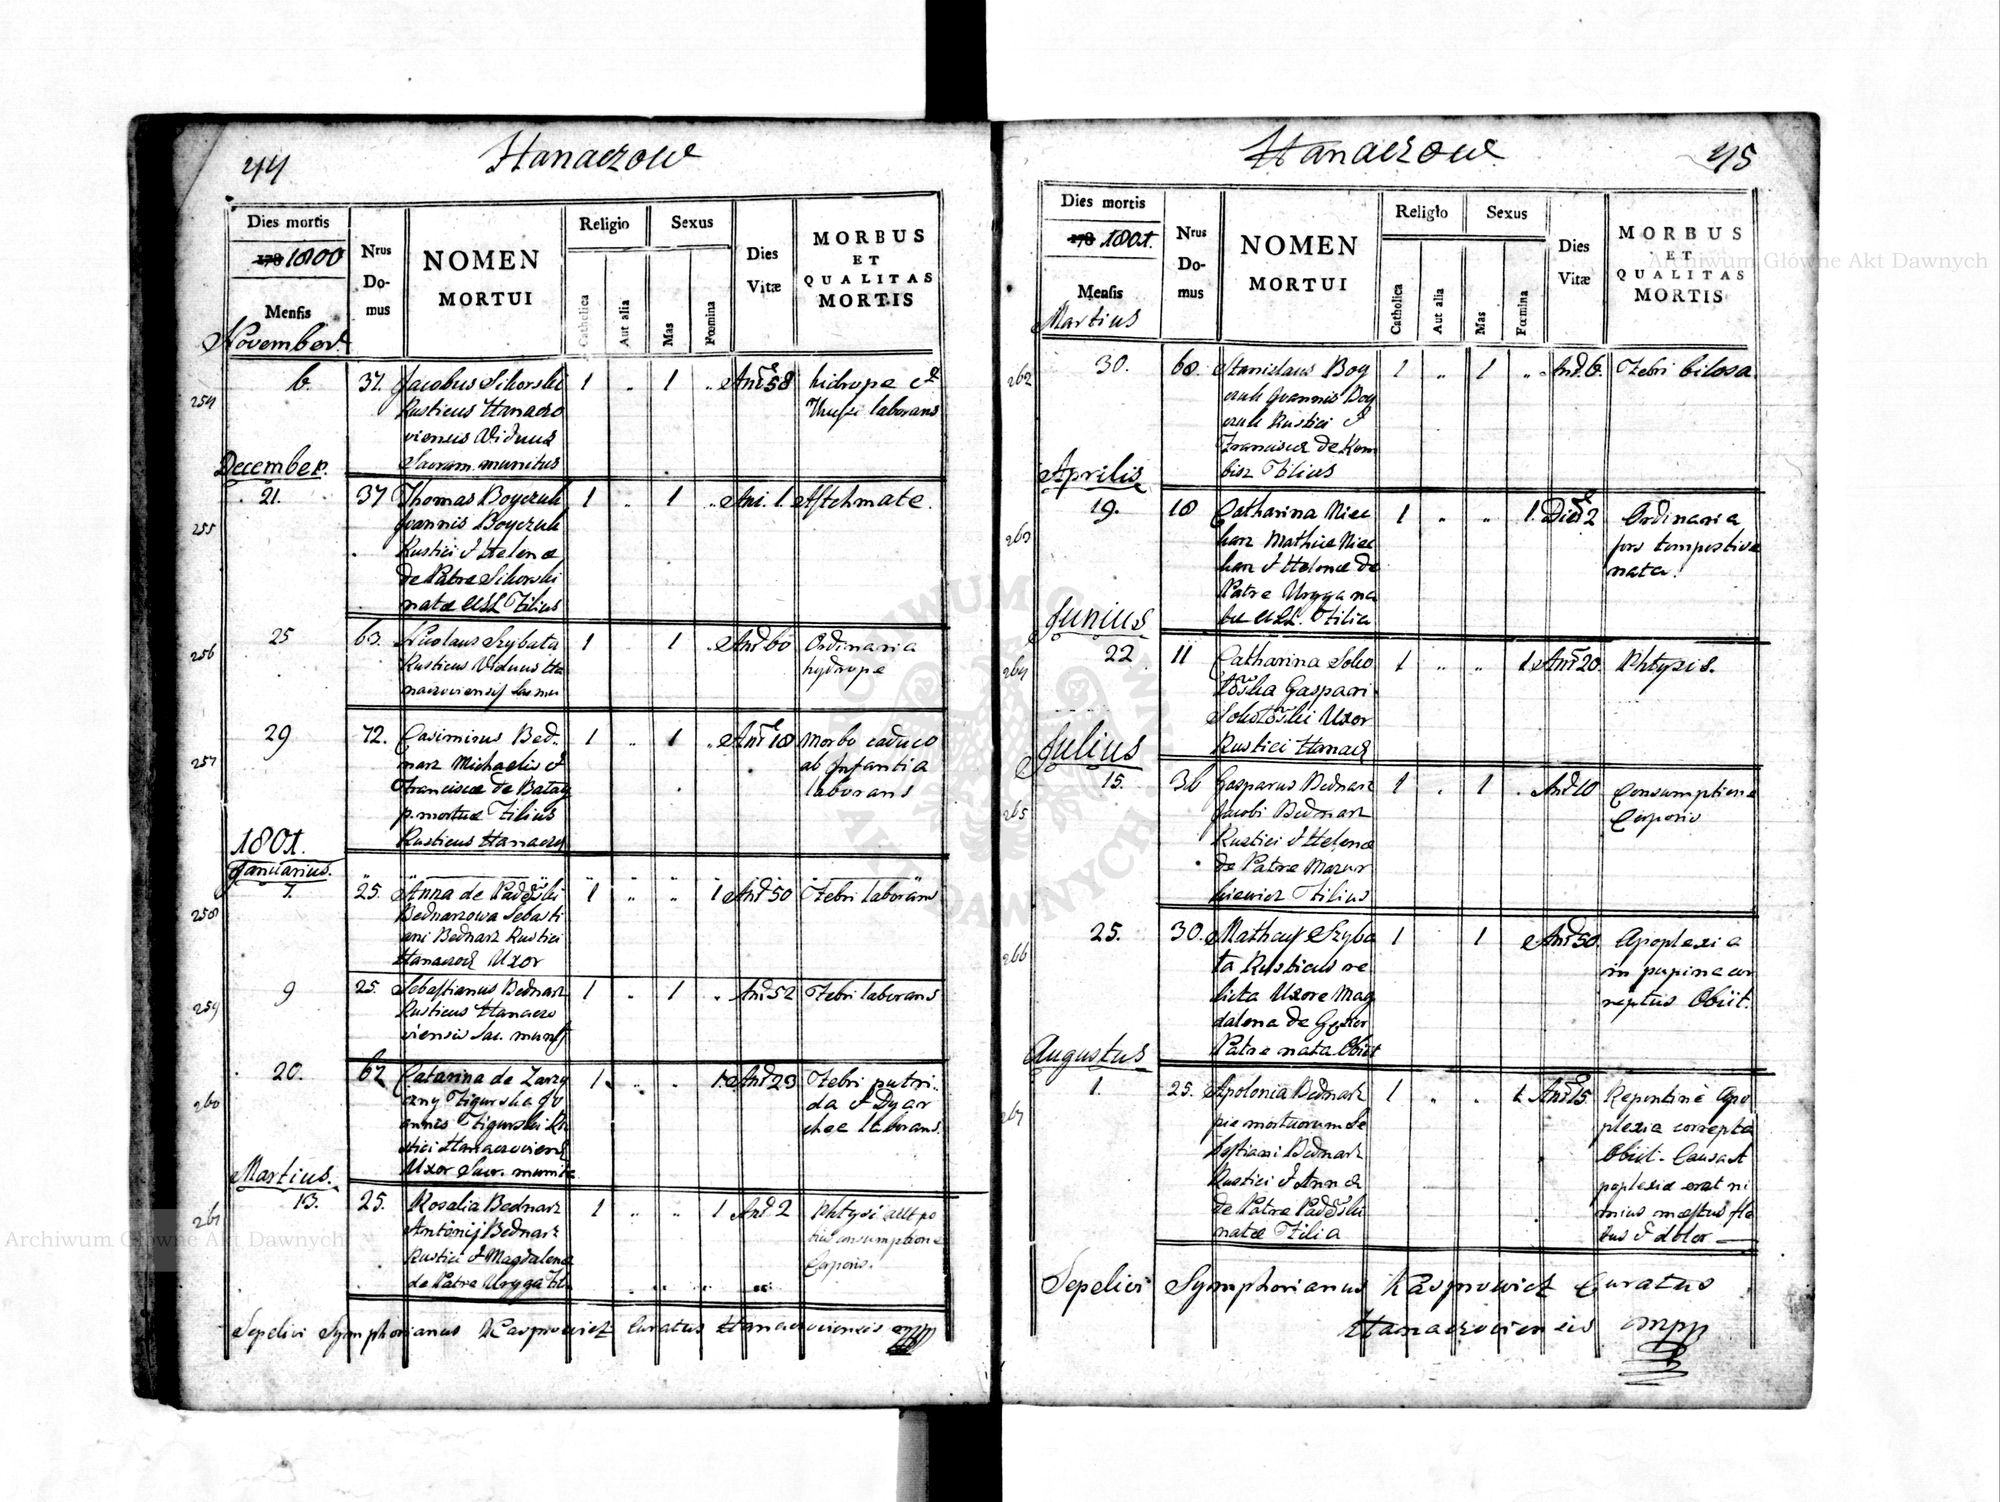 44
Hanaczow
Dies mortis
178 1800
Mensis
November.
Nrus
Do-
mus
NOMEN
MORTUI
Religio
Catholica
Aut alia
Sexus
Mas
Fœmina
Dies
Vitæ
MORBUS
ET
QUALITAS
MORTIS
254
6
37.
Jacobus Sikorski
Rusticus Hanaczo
viensis Viduus
Sacram. munitus
1
1
58
hidrope et
laborans
December.
255
21.
37
Thomas Boyczuk
Joannis Boyczuk
Rustici & Helenæ
de Patre Sikorski
natæ Filius
1
1
Ani. 1.
Astchmate.
256
25
63.
Nicolaus Szybata
Rusticus Viduus Ha
naczoviensis
1
1
60
Ordinaria
hydrope
257
29
72.
Casimirus Bed-
narz Michaelis &
Franciscæ de Batag
p. mortuæ Filius
Rusticus Hanaczo
1
1
18
Morbo caduco
ab Infantia
laborans
1801.
Januarius.
258
7.
25.
Anna de
Bednarzowa Sebasti
ani Bednarz Rustici
Hanaczov Uxor
1
1
50
Febri laborans
259
9
25.
Sebastianus Bednarz
Rusticus Hanaczo
viensis Sac. munit
1
1
52
Febri laborans
260
20.
62
Catarina de Zarzy
czny Figurska Jo
annis Figurski Ru
stici Hanaczoviens
Uxor Sacr. munita
1.
1.
23
Febri putri-
da & Dyar
laborans.
Martius.
261
13.
25.
Rosalia Bednarz
Antonij Bednarz
Rustici & Magdalenæ
de Patre Uryga Fil
1
1
2
Phtysi aut po
tius consumptione
Corporis.
Sepelivi Symphorianus Kasprowicz Curatus Hanaczoviensis mpp
Hanaczow
45
Dies mortis
178 1801.
Mensis
Martius
Nrus
Do-
mus
NOMEN
MORTUI
Religio
Catholica
Aut alia
Sexus
Mas
Fœmina
Dies
Vitæ
MORBUS
ET
QUALITAS
MORTIS
262
30.
68.
Stanislaus Boy
czuk Joannis Boy
czuk Rustici &
Franciscæ de Kom
bisz Filius
1
1
6.
Febri bilosa
Aprilis
263
19.
18
Catharina Niec
karz Mathiæ Niec
karz & Helenæ de
Patre Uryga na
tæ Filia
1
1.
2
Ordinaria
nata.
Junius
264
22
11
Catharina Soko
Gaspari
Uxor
Rustici Hanacz
1
1.
20.
Phtysis.
Julius
265
15.
36
Gasparus Bednarz
Jacobi Bednarz
Rustici & Helenæ
de Patre Mazur
kiewicz Filius
1
1
10
Consumptione
Corporis
266
25.
30.
Matheus Szyba
ta Rusticus re
licta Uxore Mag
dalena de
Patre nata Obiit
1
1
50.
Apoplexia
in popina cor
reptus Obiit.
Augustus
267
1.
25.
Apolonia Bednarz
pie mortuorum Se
bastiani Bednarz
Rustici & Annæ
de Patre
natæ Filia
1
1.
15.
Repentine Apo
plexia correpta
Obiit. Causa A
poplexiæ erat ni
mius mæstus fle
tus & dolor
Sepelivi Symphorianus Kasprowicz Curatus
Hanaczoviensis mpp
Archiwum Główne Akt Dawnych
Archiwum Główne Akt Dawnych
ARCHIWUM GŁÓWNE AKT DAWNYCH